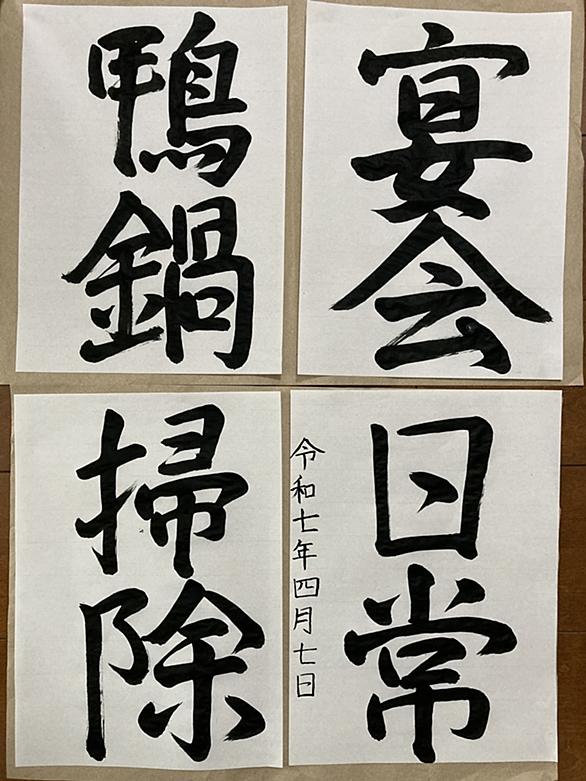 宴会
鴨鍋
日常
令和七年四月七日
掃除